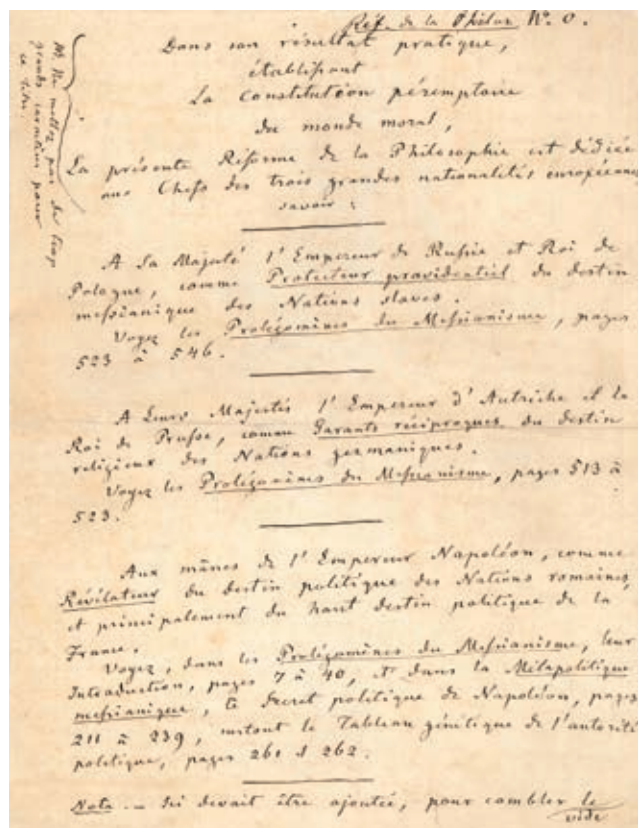 Réf. de la Philos. N.° 0.
Dans son résultat pratique,
établissant
La constitution péremptoire
du monde moral,
La présente Réforme de la Philosophie est dédiée
aux Chefs des trois grandes nationalités européennes
savoir :
A Sa Majesté l'Empereur de Russie et Roi de
Pologne, comme Protecteur providentiel du destin
messianique des Nations slaves.
Voyez les Prolégomènes du Messianisme, pages
523 à 546.
A Leurs Majestés l'Empereur d'Autriche et le
Roi de Prusse, comme Garants réciproques du destin
religieux des Nations germaniques.
Voyez les Prolégomènes du Messianisme, pages 513 à
523.
Aux mânes de l'Empereur Napoléon, comme
Révélateur du destin politique des Nations romaines,
et principalement du haut destin politique de la
France.
Voyez, dans les Prolégomènes du Messianisme, leur
Introduction, pages 7 à 40, et dans la Métapolitique
messianique, le Secret politique de Napoléon, pages
211 à 239, surtout le Tableau génétique de l'autorité
politique, pages 261 et 262.
Nota. — Ici devait être ajoutée, pour combler le
vide
Ne mettez pas de trop
grands caractères pour
ce titre.